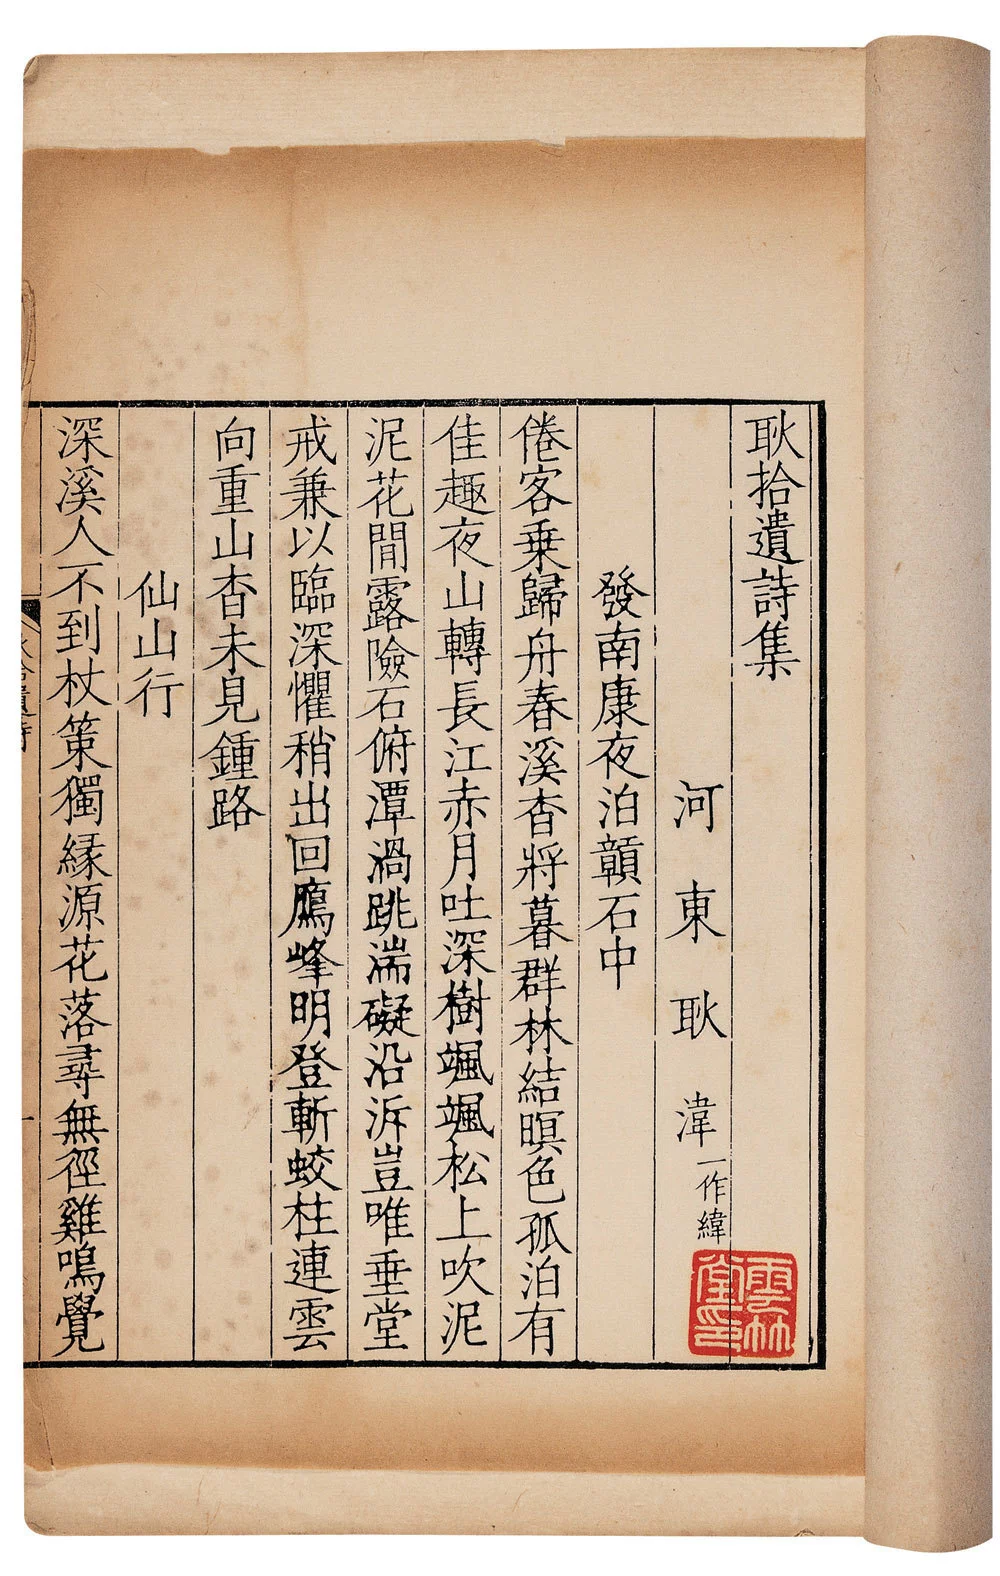 耿拾遺詩集
河東耿湋一作緯
發南康夜泊贛石中
倦客乗歸舟春溪杳將暮群林結暝色孤泊有
佳趣夜山轉長江赤月吐深樹颯颯松上吹泥
泥花間露險石俯潭渦跳湍礙沿泝豈唯垂堂
戒兼以臨深懼稍出回鴈峰明登斬蛟柱連雲
向重山杳未見鍾路
仙山行
深溪人不到杖策獨縁源花落尋無徑雞鳴覺
雲林堂印